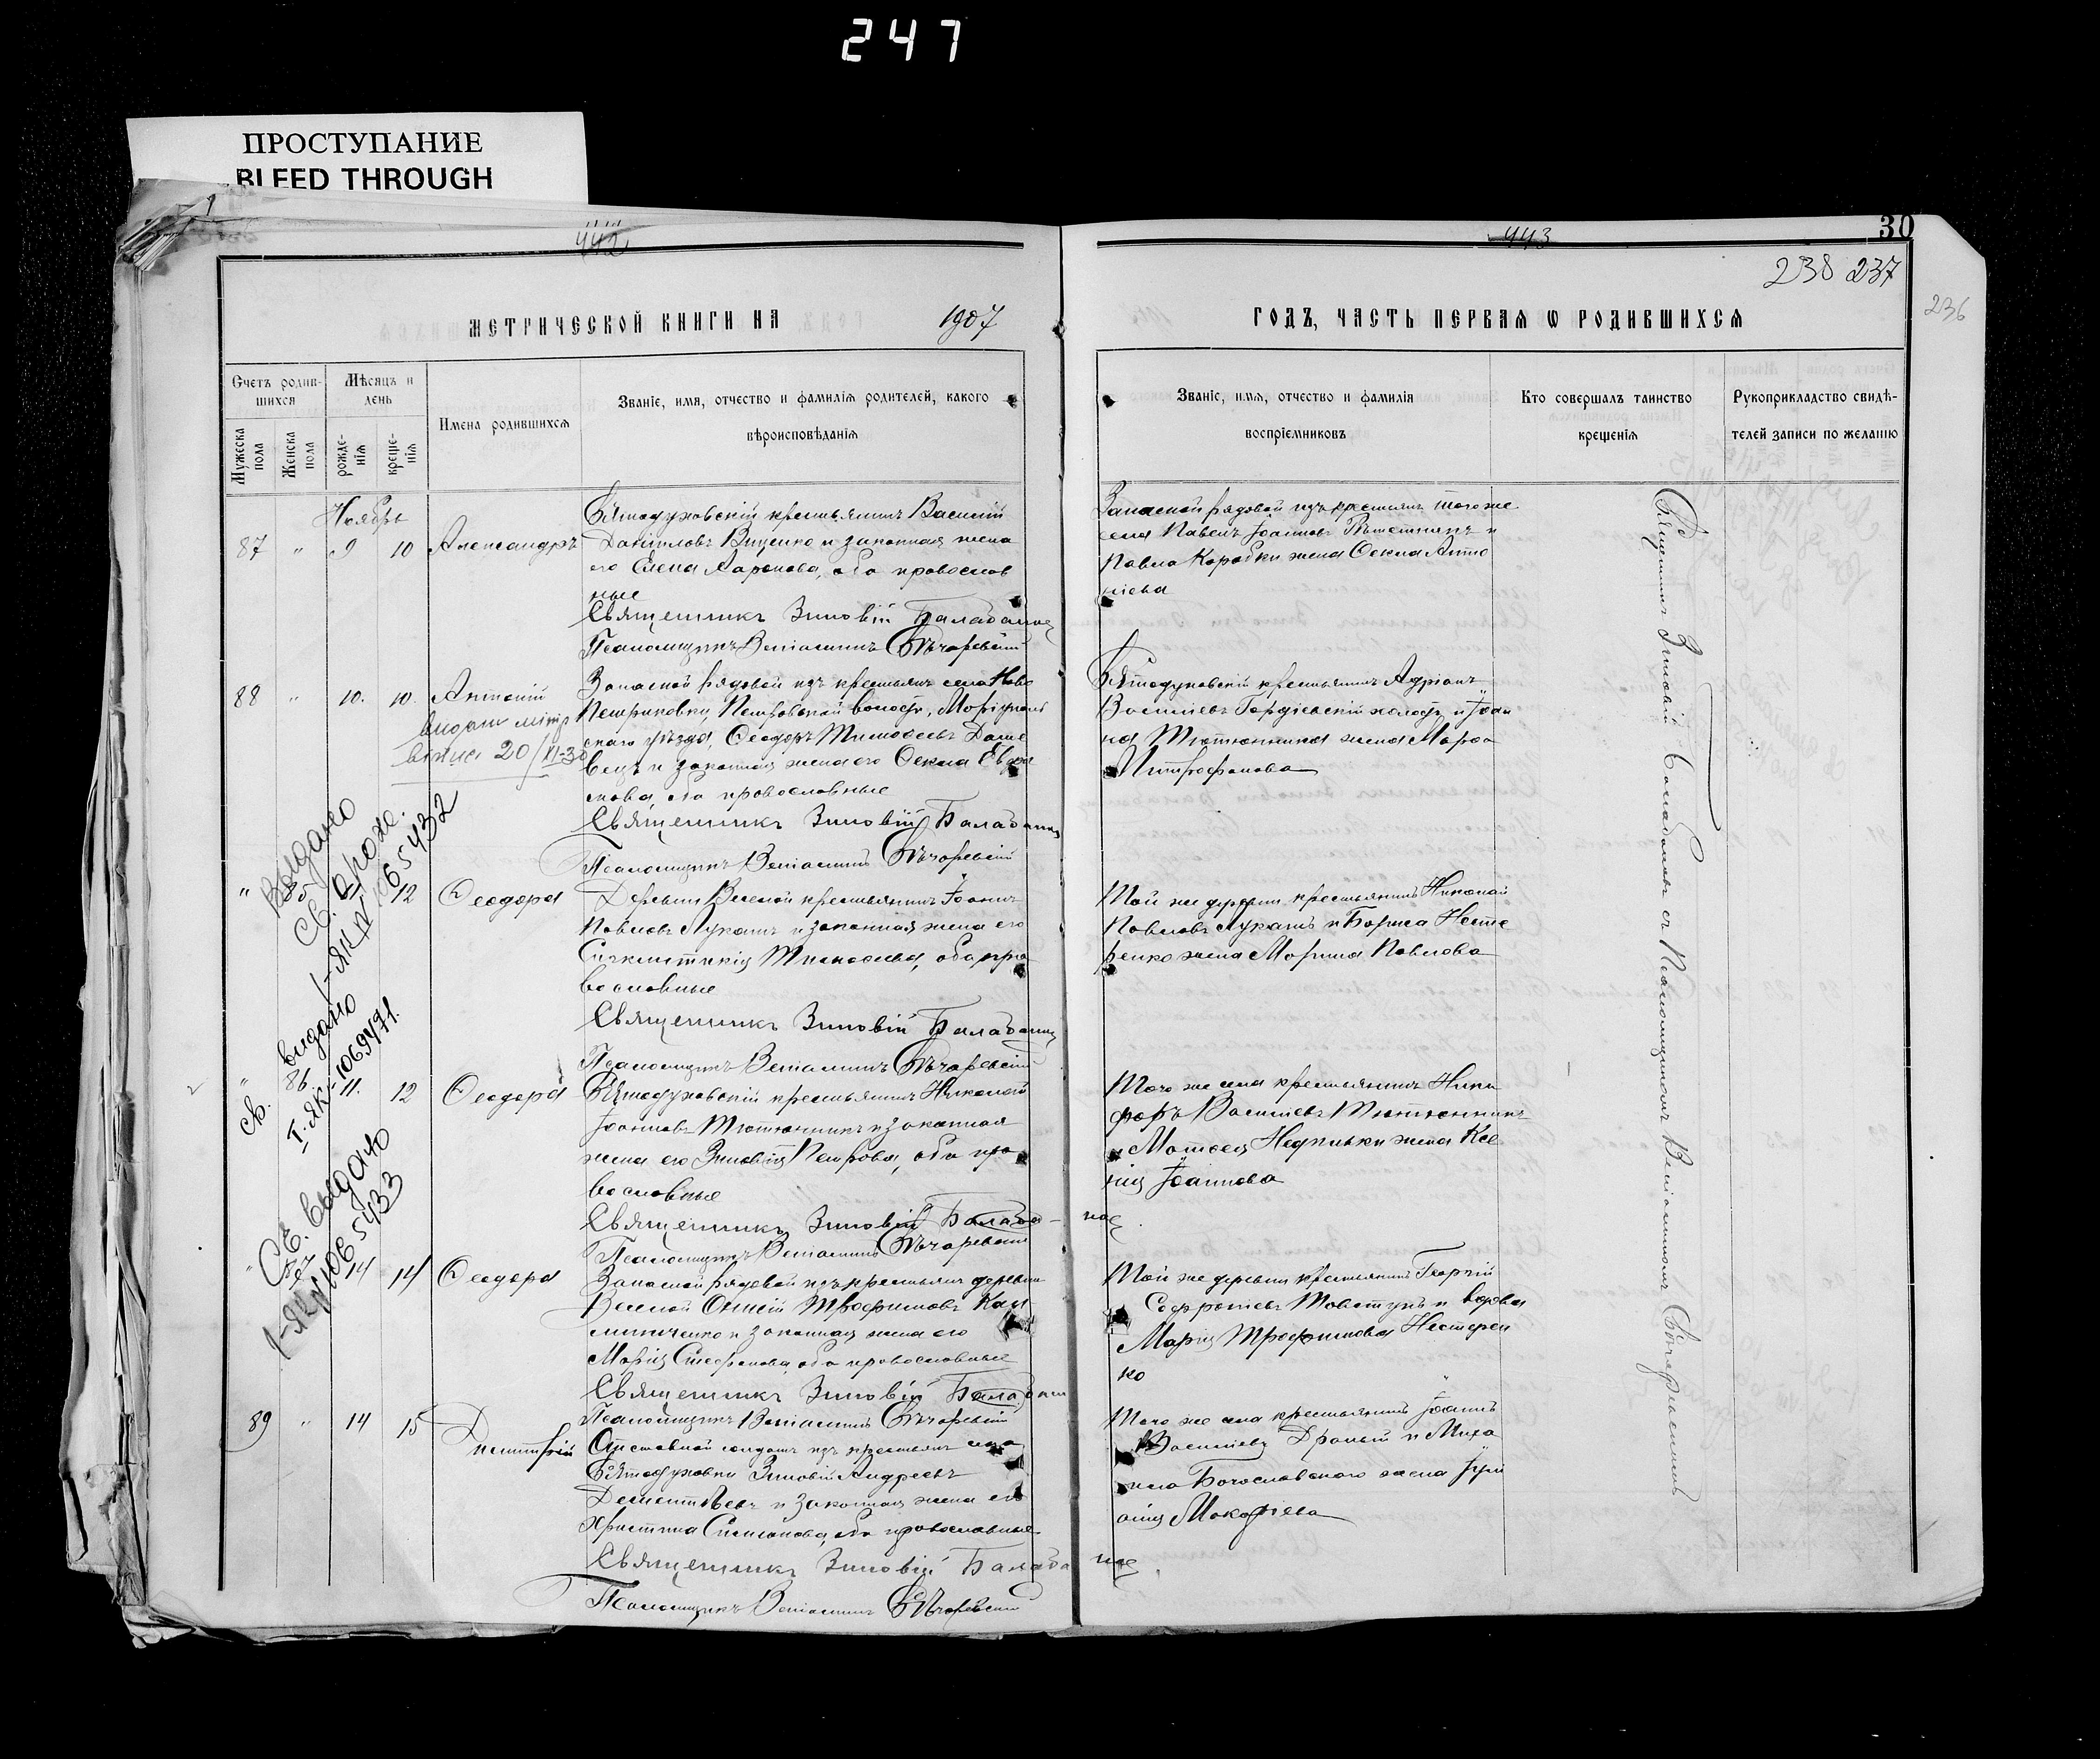 247
ПРОСТУПАНИЕ
BLEED THROUGH
442
443
30
238 237
236
МЕТРИЧЕСКОЙ КНИГИ НА 1907
ГОДЪ, ЧАСТЬ ПЕРВАЯ Ѡ РОДИВШИХСЯ
Счетъ родив-
шихся
Мужеска
пола
Женска
пола
Мѣсяцъ и
день
рожде-
нія
креще-
нія
Имена родившихся
Званіе, имя, отчество и фамилія родителей, какого
вѣроисповѣданія
Званіе, имя, отчество и фамилія
воспріемниковъ
Кто совершалъ таинство
крещенія
Рукоприкладство свидѣ-
телей записи по желанію
Ноябрь
87 " 9 10 Александръ
крестьянинъ Василій
Даніиловъ Виценко и законная жена
его Елена Ааронова, оба православ
ные
Священникъ Зиновій
Псаломщикъ Веніаминъ
Запасной рядовой изъ крестьянъ тогоже
села Павелъ Іоанновъ и
Павла Коробки жена Ѳекла Анто
ніева
88 " 10. 10. Антоній
20/VI-30
Запасной рядовой изъ крестьянъ села Ново
Петриковки, Петровской волости, Маріуполь
скаго уѣзда, Ѳеодоръ Тимоѳеевъ Даше
вецъ и законная жена его Ѳекла Евфи
мова, оба православные
Священникъ Зиновій
Псаломщикъ Веніаминъ
крестьянинъ Адріанъ
Василіевъ Гордіевскій холостъ и Іоан
на Тютюнника жена Марѳа
Митрофанова
Выдано
Св. о рожд.
1-ЯК № 065432
" 85 11 12 Ѳеодора
Деревни Веселой крестьянинъ Іоаннъ
Павловъ Лукашъ и законная жена его
Синклитикія Тимоѳеева, оба пра
вославные
Священникъ Зиновій
Псаломщикъ Веніаминъ
Той же деревни крестьянинъ Николай
Павловъ Лукашъ и Бориса Несте
ренко жена Марина Павлова
Св. выдано
I-ЯК-1069471.
" 86. 11. 12 Ѳеодора
крестьянинъ Николай
Іоанновъ Тютюнникъ и законная
жена его Зиновія Петрова, оба пра
вославные
Священникъ Зиновій
Псаломщикъ Веніаминъ
Того же села крестьянинъ Ники
форъ Василіевъ Тютюнникъ
и Матѳея жена Ксе
нія Іоаннова
Св. выдано
1-ЯК № 065433
" 87 14 14 Ѳеодора
Запасной рядовой изъ крестьянъ деревни
Веселой Трофимовъ Кал
линиченко и законная жена его
Марія Стефанова, оба православные
Священникъ Зиновій
Псаломщикъ Веніаминъ
Той же деревни крестьянинъ Георгій
Софроніевъ Товстунъ и вдова
Марія Трофимова Нестерен
ко
89 " 14 15 Димитрій
Отставной солдатъ изъ крестьянъ села
Зиновій Андреевъ
Дементьевъ и законная жена его
Христина Симеонова, оба православные
Священникъ Зиновій
Псаломщикъ Веніаминъ
Того же села крестьянинъ Іоаннъ
Василіевъ и Миха
ила Богославскаго жена Іулі
анія Макаріева
Священникъ Зиновій съ Псаломщикомъ Веніаминомъ